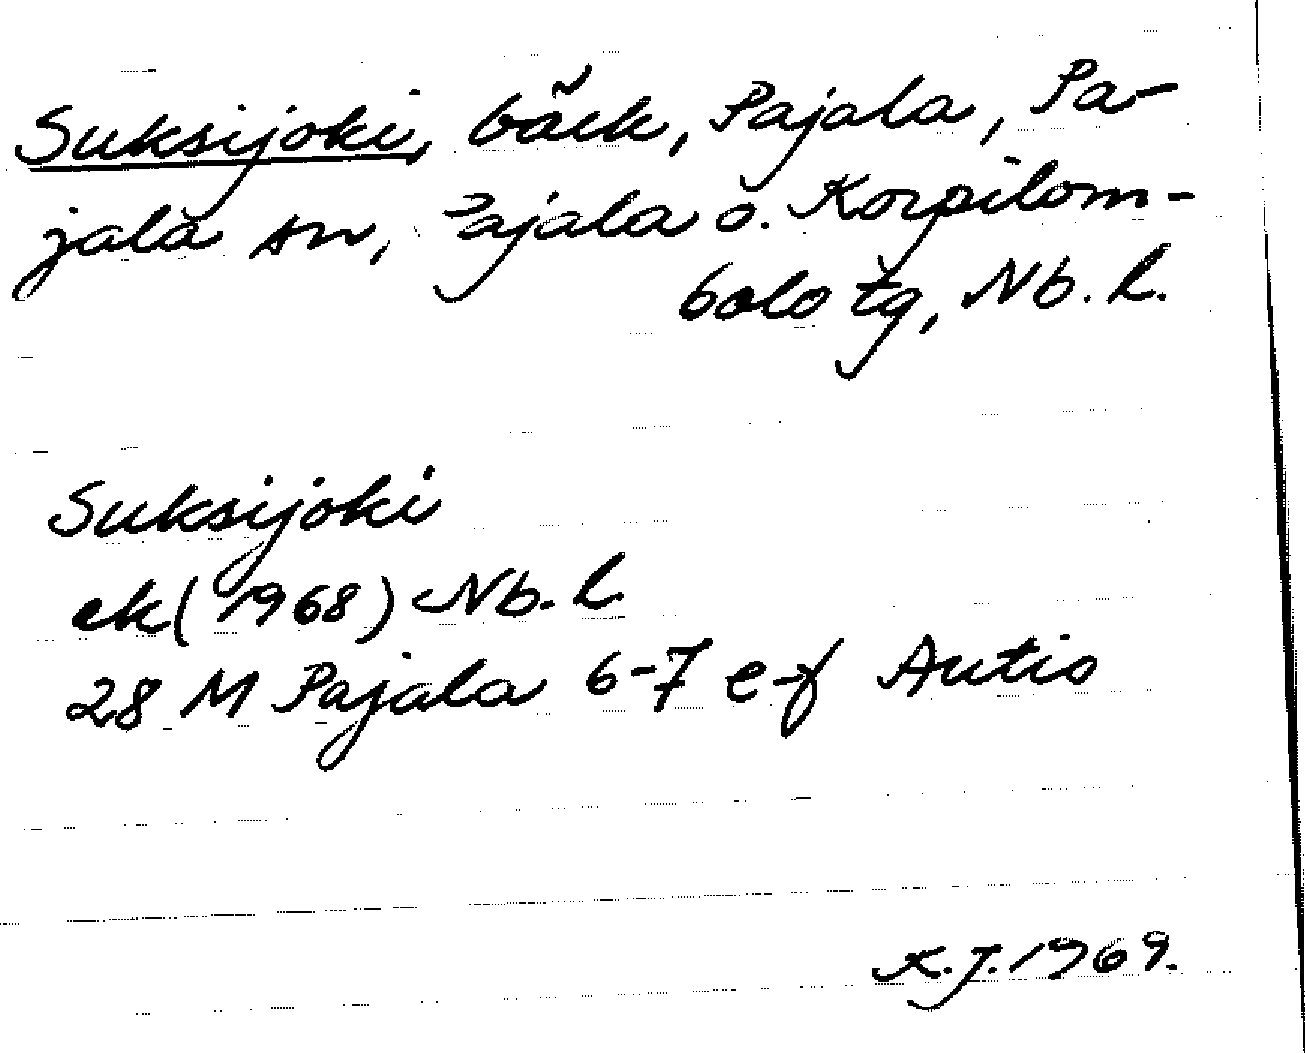 Suksijoki, bäck, Pajala, Pa-
jala sn, Pajala o. Korpilom-
bolo tg, Nb. l.
Suksijoki
ek (1968) Nb. l.
28 M Pajala 6-7 e-f Autio
K.J. 1969.